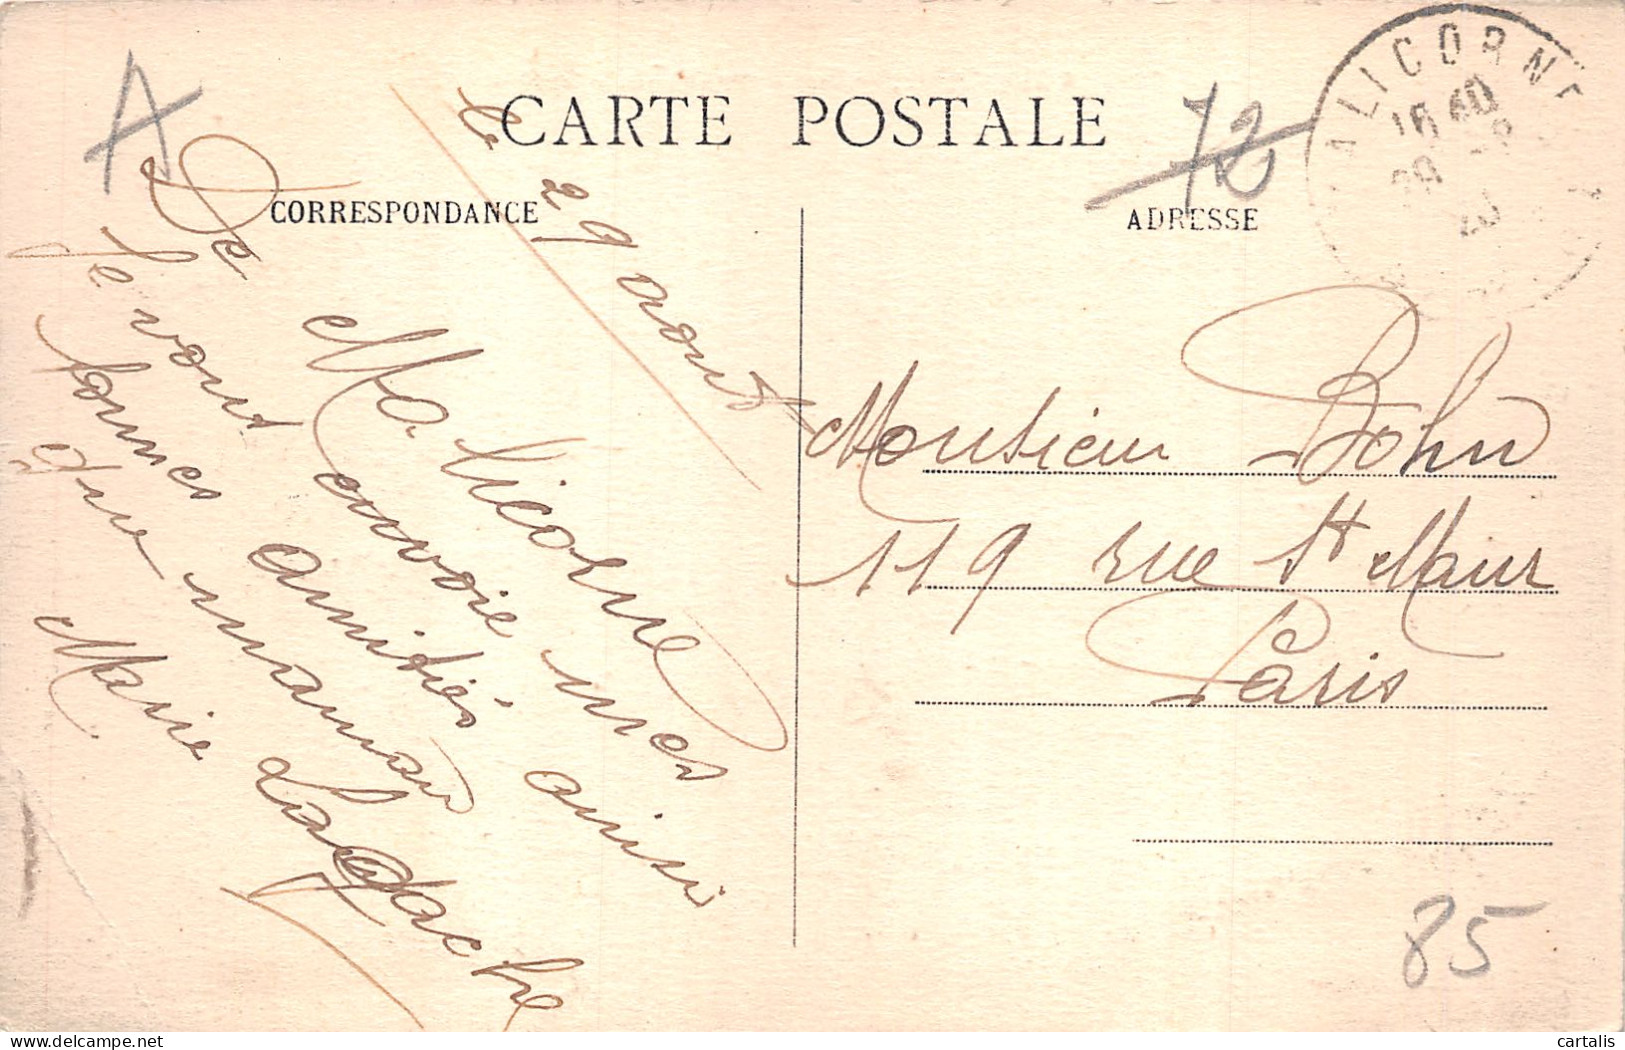 A
CARTE POSTALE
72
ALICORNE
16 40
CORRESPONDANCE
ADRESSE
le 29 aout
De Malicorne
Je vous envoie mes
bonnes amitiés ainsi
que maman
Marie Lagache
Monsieur Bohn
119 rue St Maur
Paris
85
cartalis